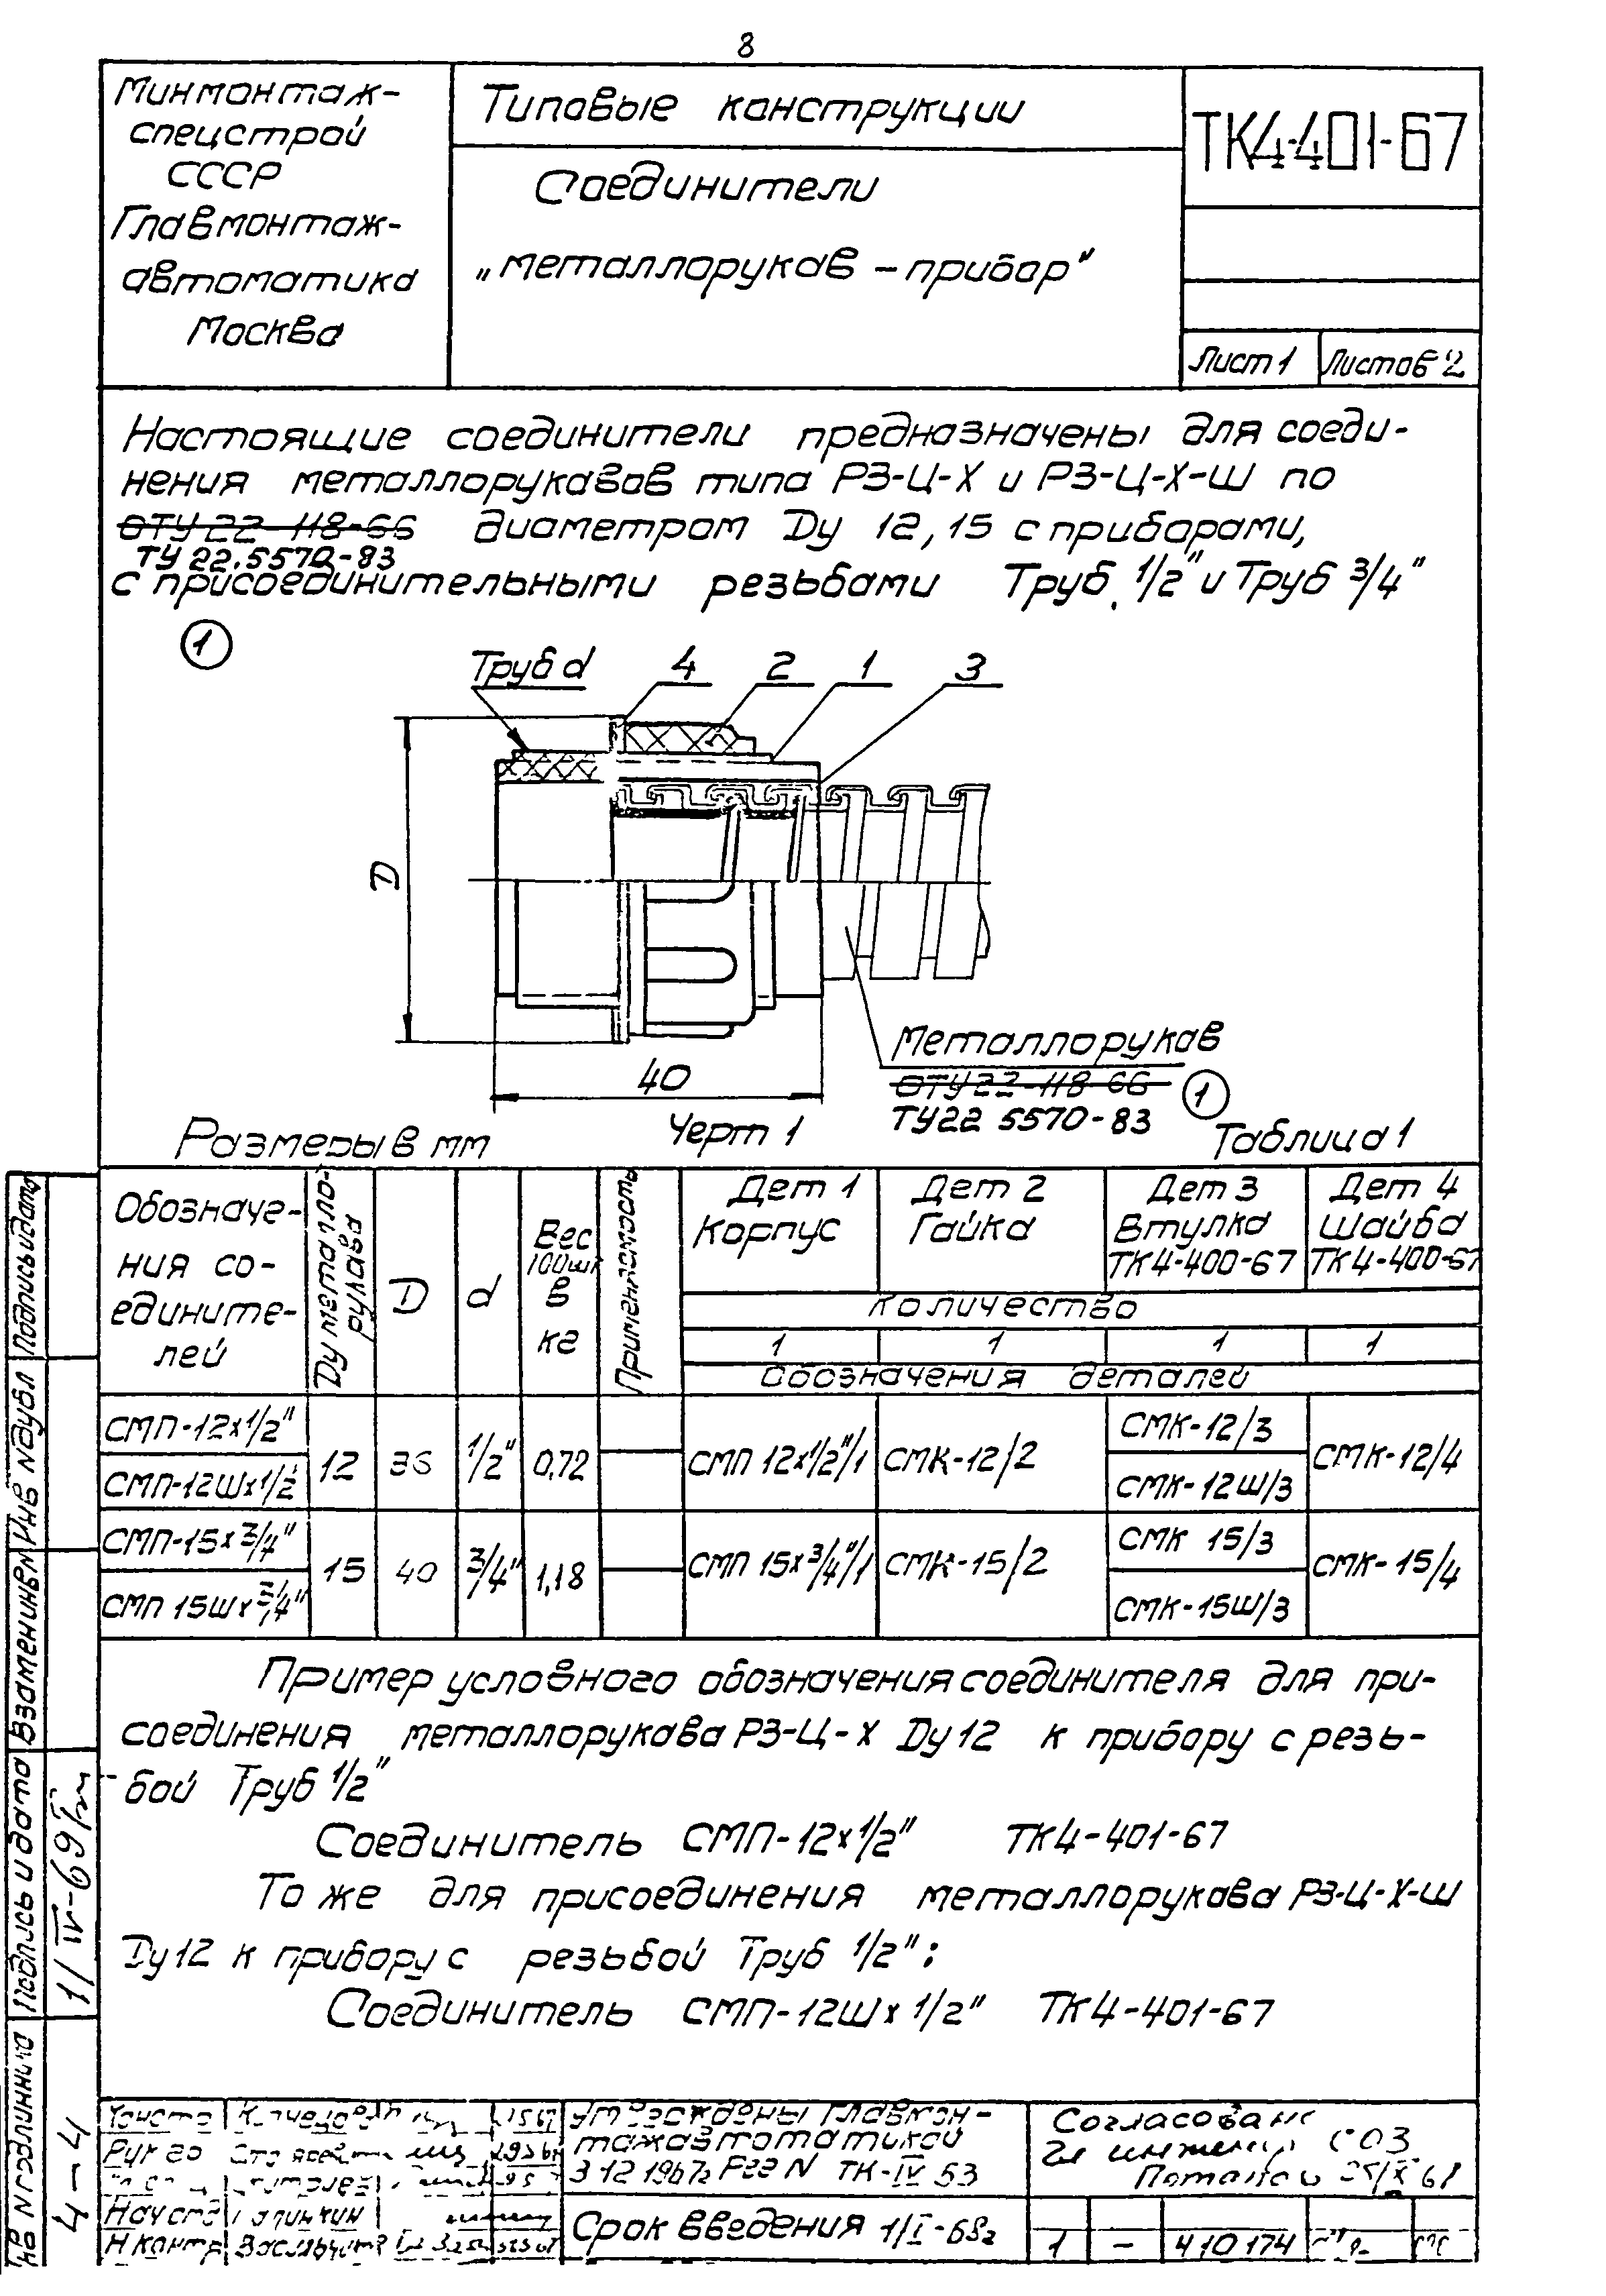 8
Минмонтаж-
спецстрой
СССР
Главмонтаж-
автоматика
Москва
Типовые конструкции
Соединители
„металлорукав – прибор"
ТК4-401-67
Лист 1
Листов 2
Настоящие соединители предназначены для соеди-
нения металлорукавов типа РЗ-Ц-Х и РЗ-Ц-Х-Ш по
ОТУ 22-118-66 диаметром Dу 12, 15 с приборами,
ТУ 22.5570-83
с присоединительными резьбами Труб. 1/2" и Труб 3/4"
1
Труб d
4
2
1
3
D
40
Металлорукав
ОТУ 22-118-66
1
ТУ22 5570-83
Размеры в мм
Черт 1
Таблица 1
Обозначе-
ния со-
едините-
лей
Dу металло-
рукава
D
d
Вес
100шт
в
кг
Применяемость
Дет 1
Корпус
Дет 2
Гайка
Дет 3
Втулка
ТК4-400-67
Дет 4
Шайба
ТК4-400-67
Количество
1
1
1
1
Обозначения деталей
СМП-12х1/2"
СМП-12Шх1/2
12
36
1/2"
0,72
СМП 12х1/2"/1
СМК-12/2
СМК-12/3
СМК-12Ш/3
СМК-12/4
СМП-15х3/4"
СМП 15Шх3/4"
15
40
3/4"
1,18
СМП 15х3/4"/1
СМК-15/2
СМК 15/3
СМК-15Ш/3
СМК-15/4
Пример условного обозначения соединителя для при-
соединения металлорукава РЗ-Ц-Х Dу 12 к прибору с резь-
бой Труб 1/2"
Соединитель СМП-12х1/2" ТК4-401-67
То же для присоединения металлорукава РЗ-Ц-Х-Ш
Dу 12 к прибору с резьбой Труб 1/2":
Соединитель СМП-12Шх1/2" ТК4-401-67
Подпись и дата
Инв N дубл
Взамен инв N
Подпись и дата
1/IV-69г
N подлинника
4-4
Рук
Н контр
Утверждены Главмон-
тажавтоматикой
3 12 1967г Рег N ТК-IV 53
Срок введения 1/I-68г
Согласовано
Гл инженер СОЗ
Потапов
1
–
4 10 174